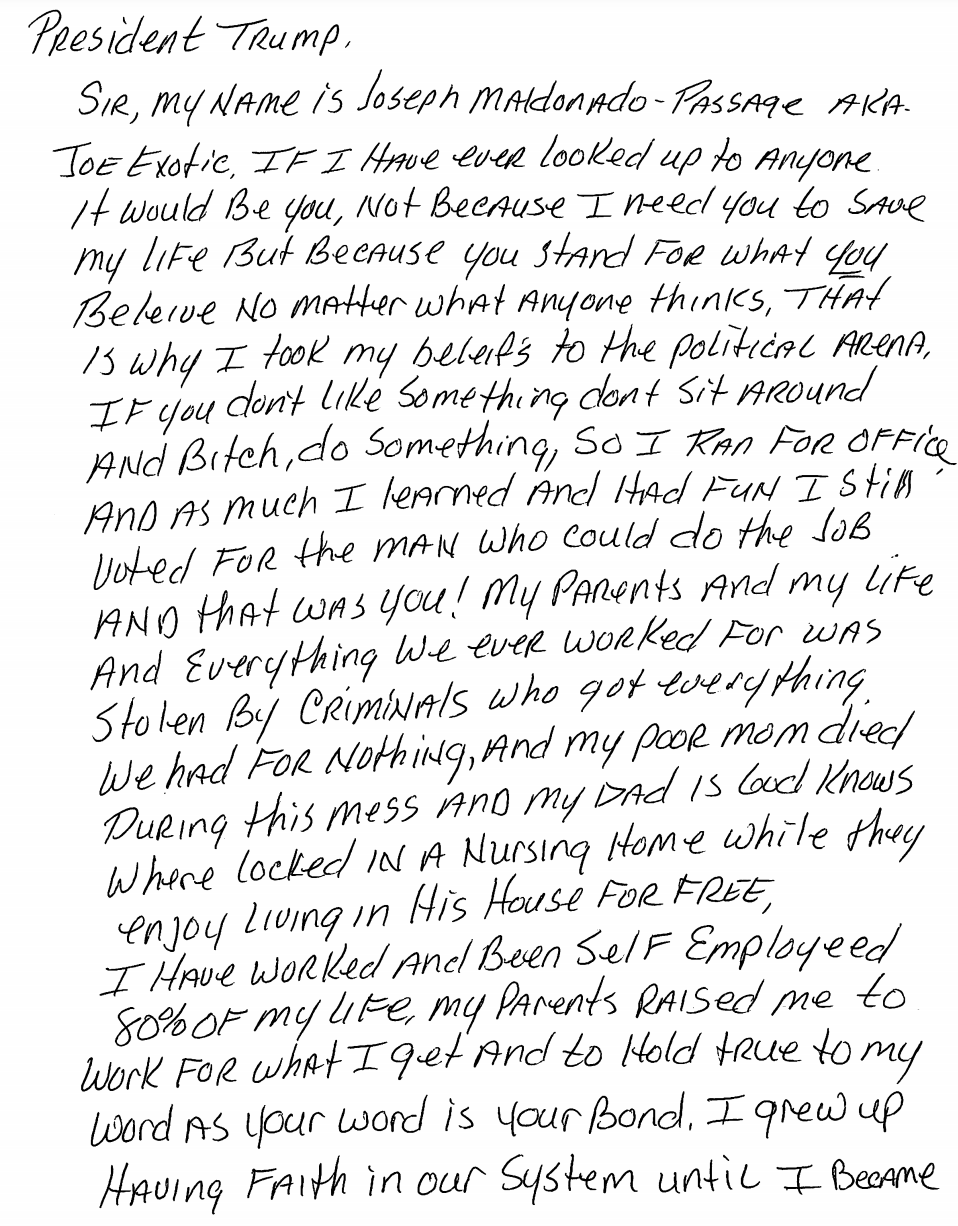 President Trump,
Sir, my name is Joseph Maldonado-Passage AKA.
Joe Exotic, If I have ever looked up to anyone
it would be you, not because I need you to save
my life but because you stand for what you
Beleive no matter what anyone thinks, THAT
is why I took my beleifs to the political arena,
If you don't like something dont sit around
and Bitch, do something, So I ran for office,
And as much I learned and had fun I still
voted for the man who could do the job
and that was you! My parents and my life
And Everything we ever worked for was
stolen by criminals who got everything
we had for nothing, and my poor mom died
During this mess and my dad is God knows
where locked in a nursing home while they
enjoy living in his house for FREE,
I have worked and been self employeed
80% of my life, my parents raised me to
work for what I get and to hold true to my
word as your word is your bond. I grew up
Having faith in our system until I became